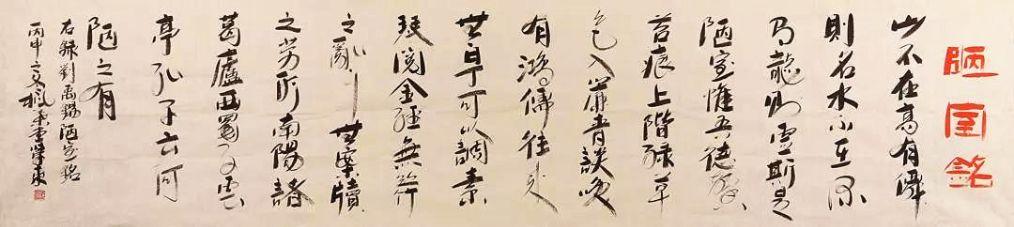 陋室銘
山不在高有僊
則名水不在深
有龍則靈斯是
陋室惟吾德馨
苔痕上階綠草
色入簾青談笑
有鴻儒往來
無白丁可以調素
琴閱金經無絲竹
之亂耳無案牘
之勞形南陽諸
葛廬西蜀子雲
亭孔子云何
陋之有
右錄劉禹錫陋室銘
丙申之夏